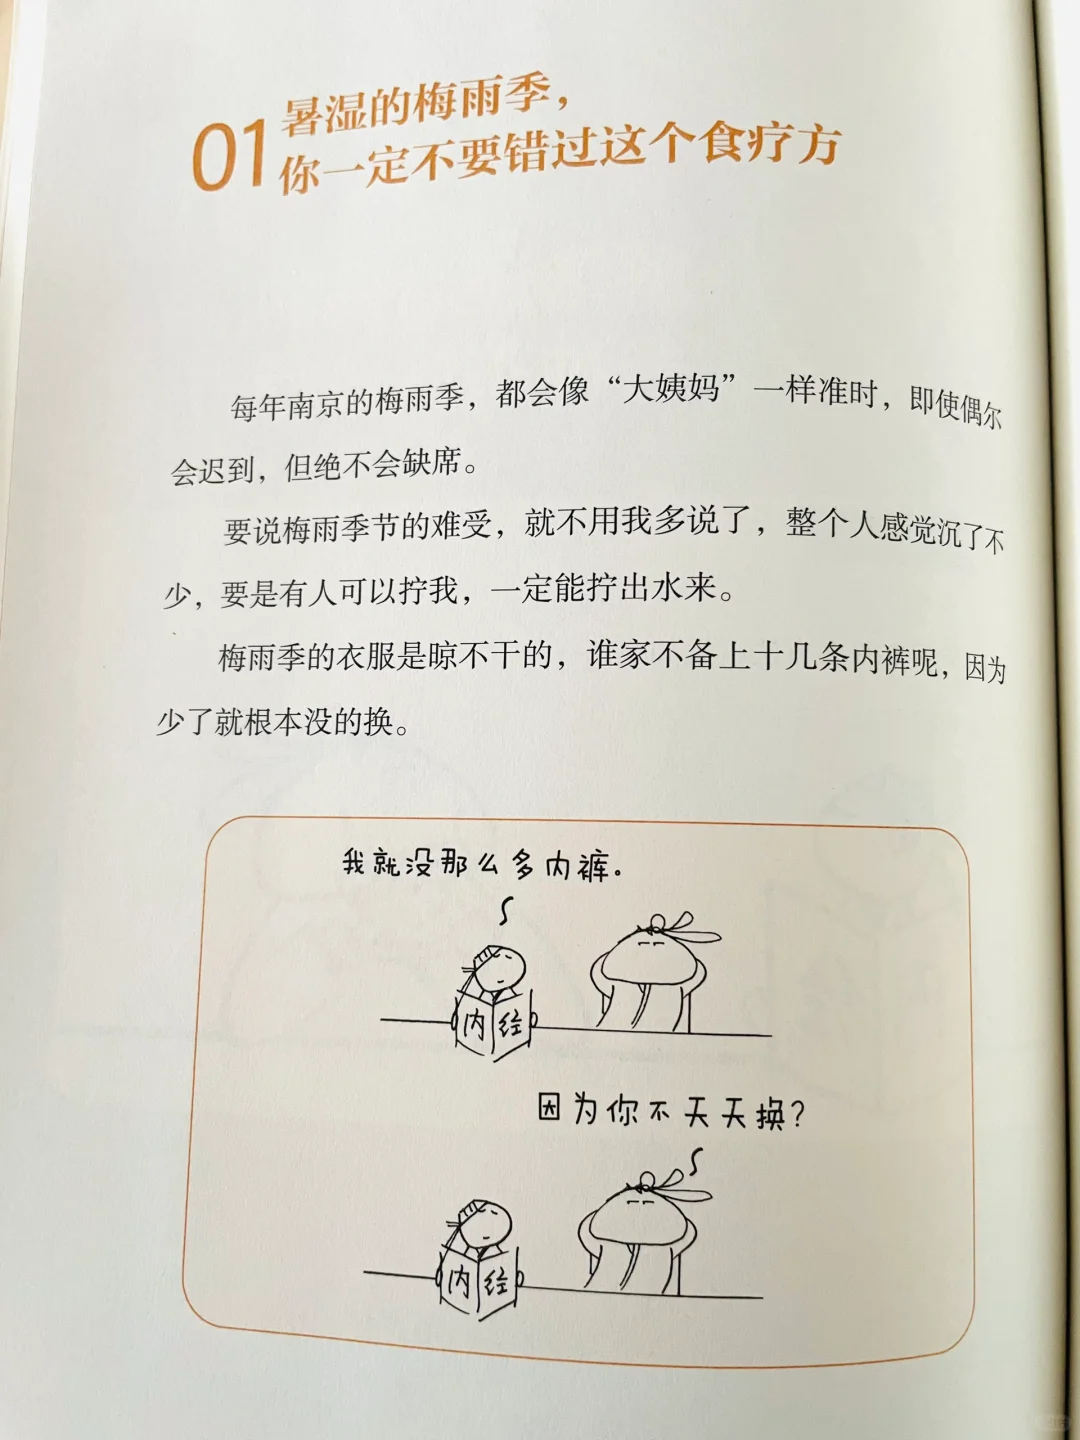 01
暑湿的梅雨季，
你一定不要错过这个食疗方
每年南京的梅雨季，都会像“大姨妈”一样准时，即使偶尔
会迟到，但绝不会缺席。
要说梅雨季节的难受，就不用我多说了，整个人感觉沉了不
少，要是有人可以拧我，一定能拧出水来。
梅雨季的衣服是晾不干的，谁家不备上十几条内裤呢，因为
少了就根本没的换。
我就没那么多内裤。
内经
因为你不天天换？
内经